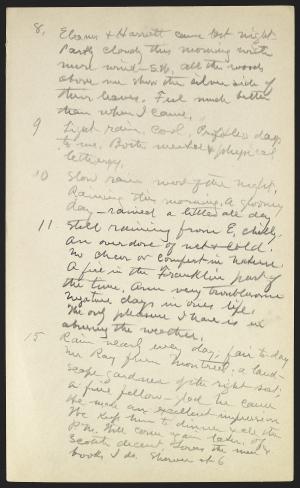 8. Eleanor & Harriett came last night.
Partly cloudy this morning with
more wind - S.W. all the woods
above me show the silver side of
their leaves. Feel much better
than when I came.
9 Light rain, cool. Profitless days
to me. Both mental & physical
lethargy.
10 Slow rain most of the night.
Raining this morning. A gloomy
day - rained a little all day
11. Still raining from E, chilly.
An overdose of wet & cold.
No cheer or comfort in Nature.
A fire in the Franklin part of
the time. Arm very troublesome
negative days in ones life.
The only pleasure I have is in
abusing the weather.
15 Rain nearly every day, fair to day
Mr Ray from Montreal, a land-
scape gardener of the right sort,
a fine fellow - glad he came
He made an excellent impression
We kept him to dinner
P.M. Will come again later. Of
Scotch descent. Loves the men &
books I do. Shower at 6